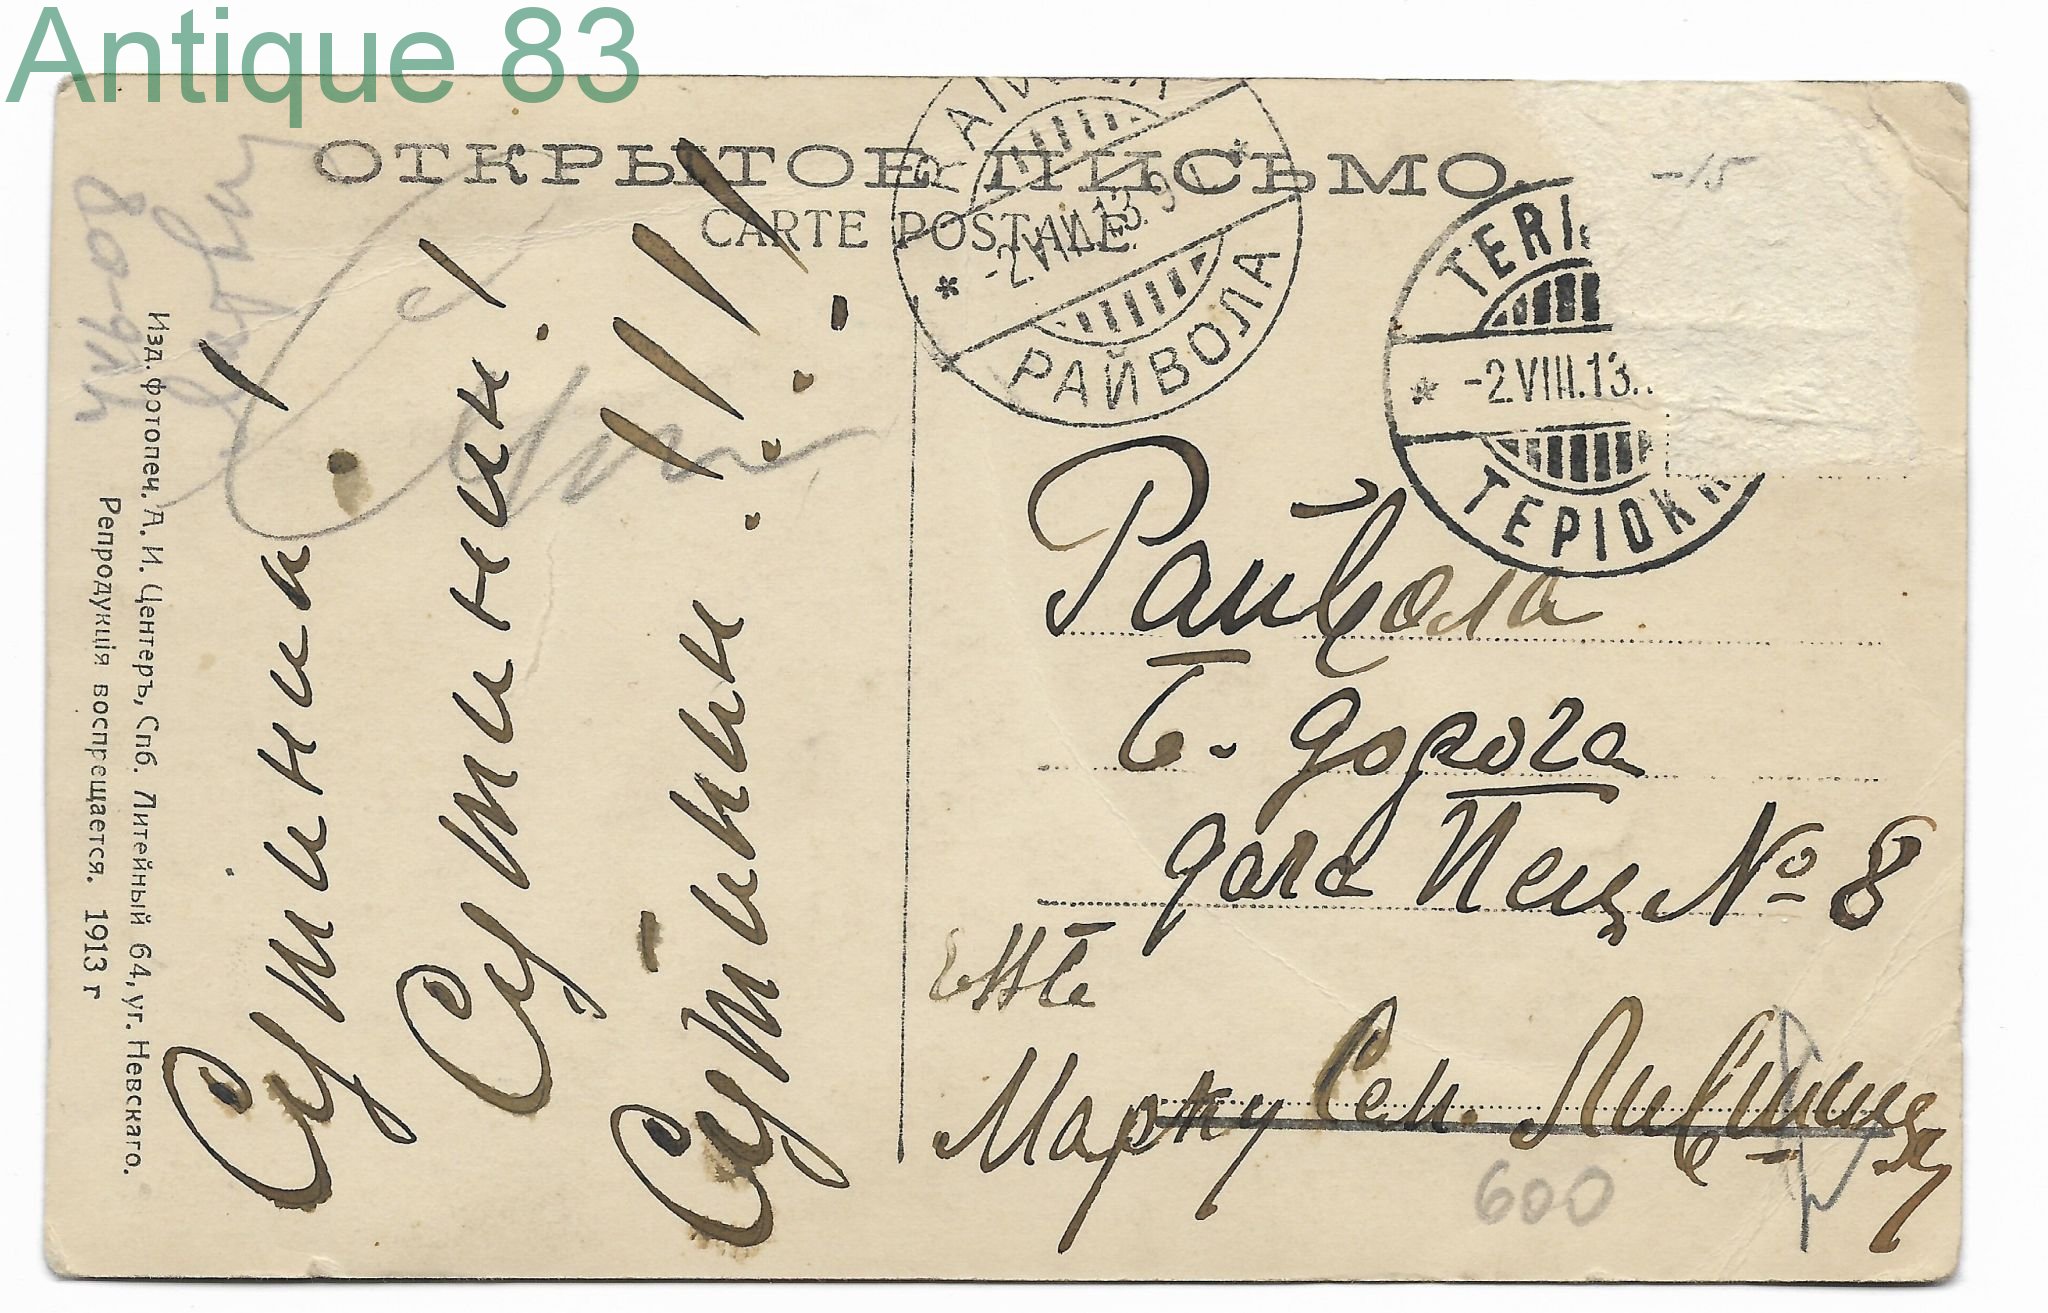 Antique 83
ОТКРЫТОЕ ПИСЬМО.
CARTE POSTALE
-2.VIII.13.9
РАЙВОЛА
TERI
-2.VIII.13.
ТЕРІОКК
-15
Изд. фотопеч. А. И. Центеръ, Спб. Литейный 64, уг. Невскаго.
Репродукція воспрещается. 1913 г
Сутинин!
Сутинин!
Сутинин!!!
Райвола
Б. дорога
дача №8
Марку Сем. Лившицу
600